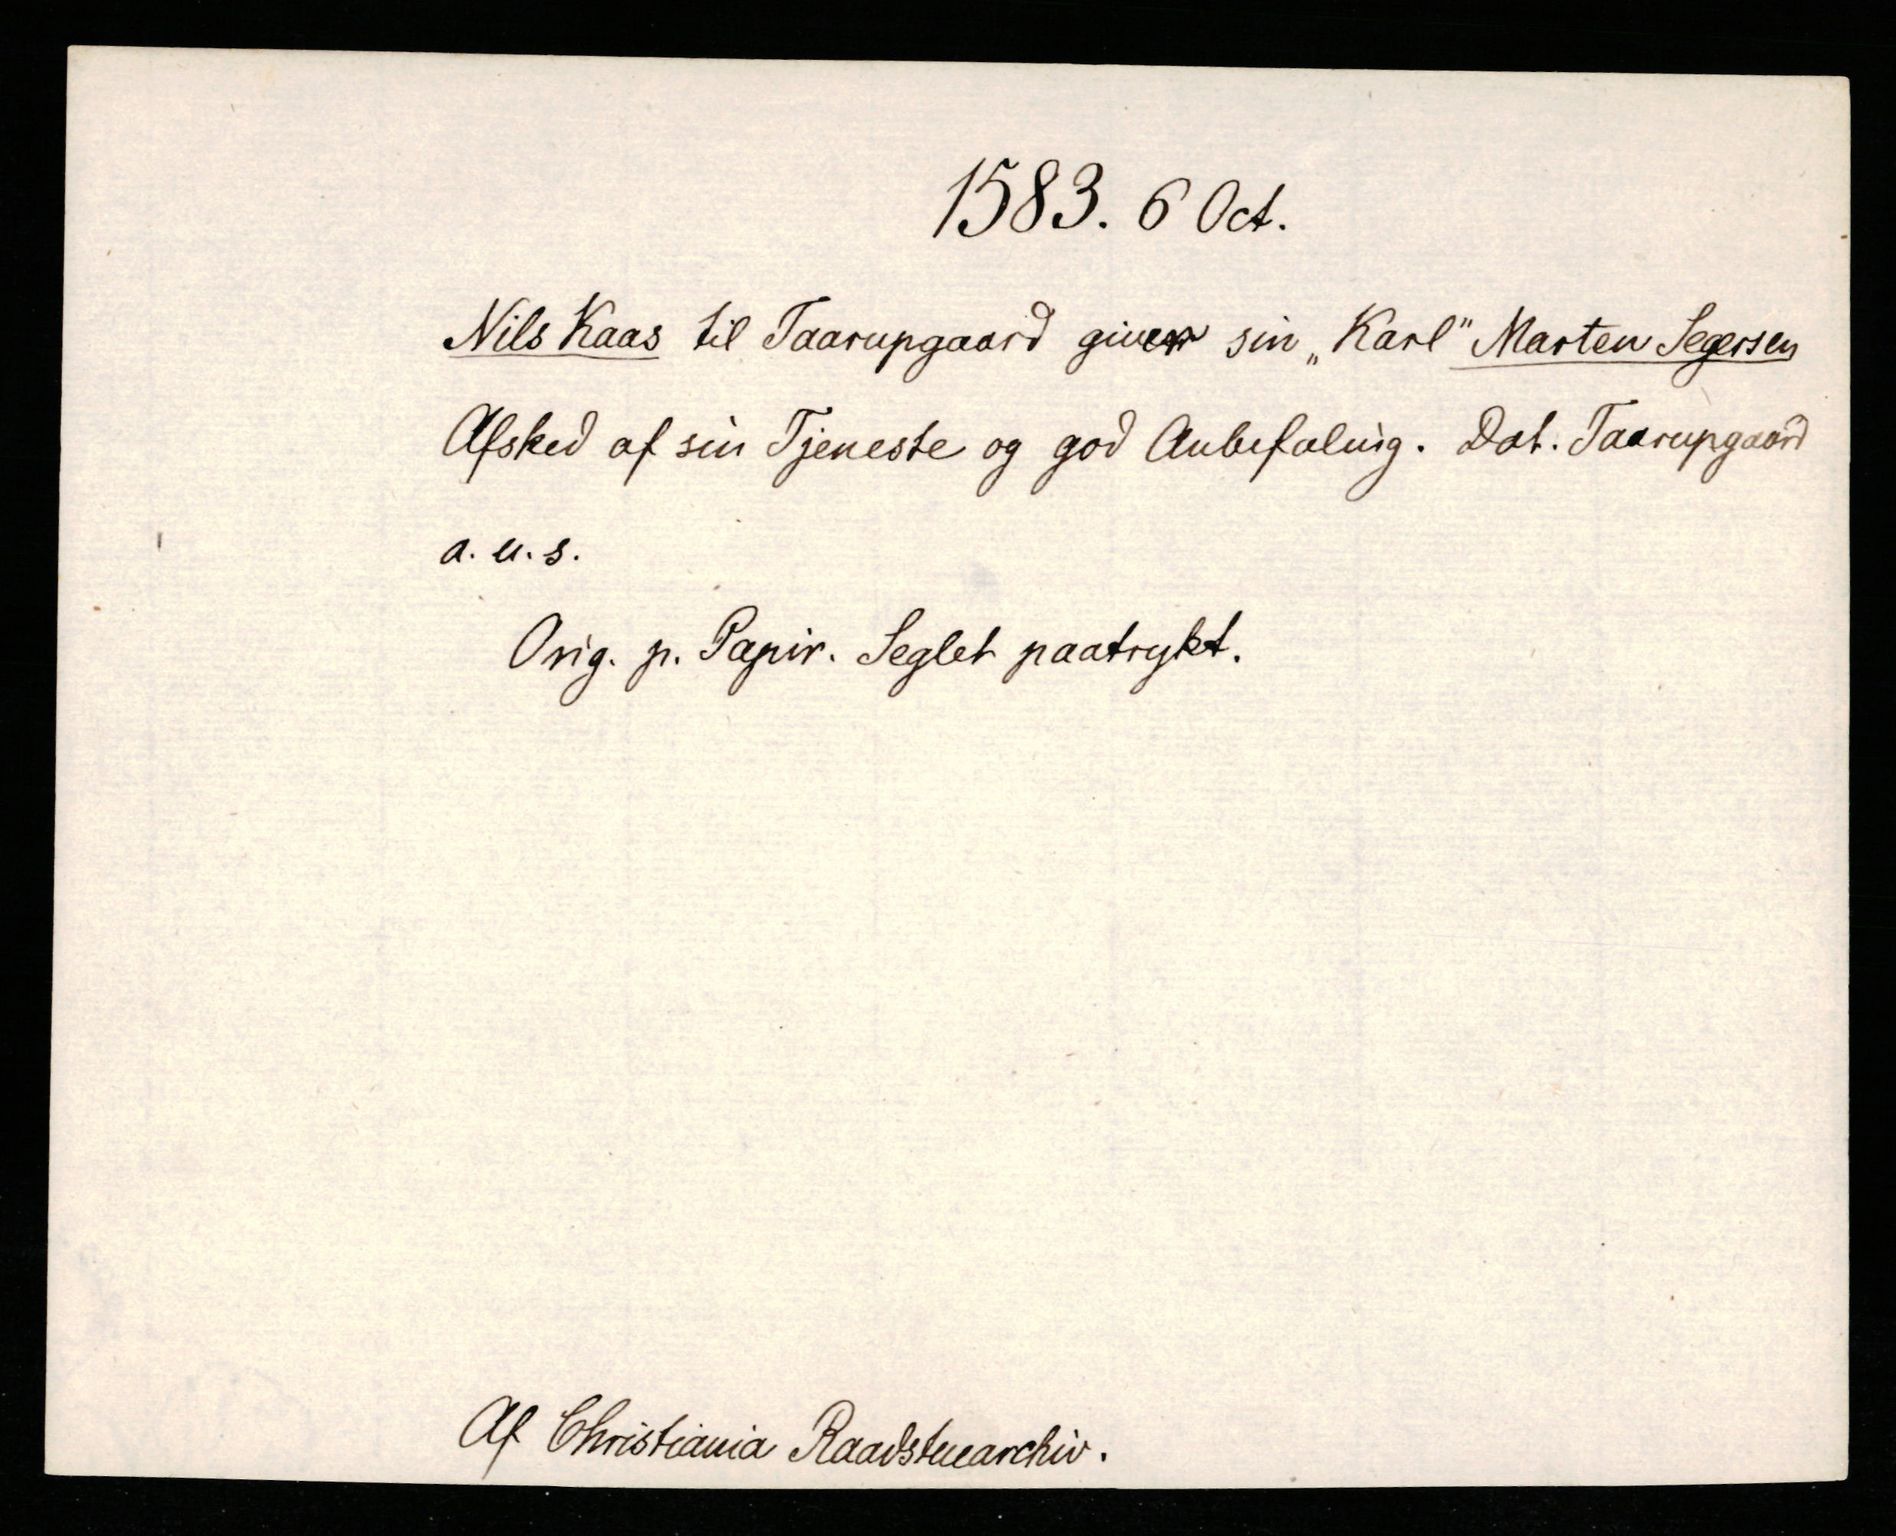 1583. 6 Oct.
Nils Kaas til Taarupgaard giver sin „Karl" Marten Segersen
Afsked af sin Tjeneste og god Anbefaling. Dat. Taarupgaard
a. u. s.
Orig. p. Papir. Seglet paatrykt.
Af Christiania Raadstuearchiv.